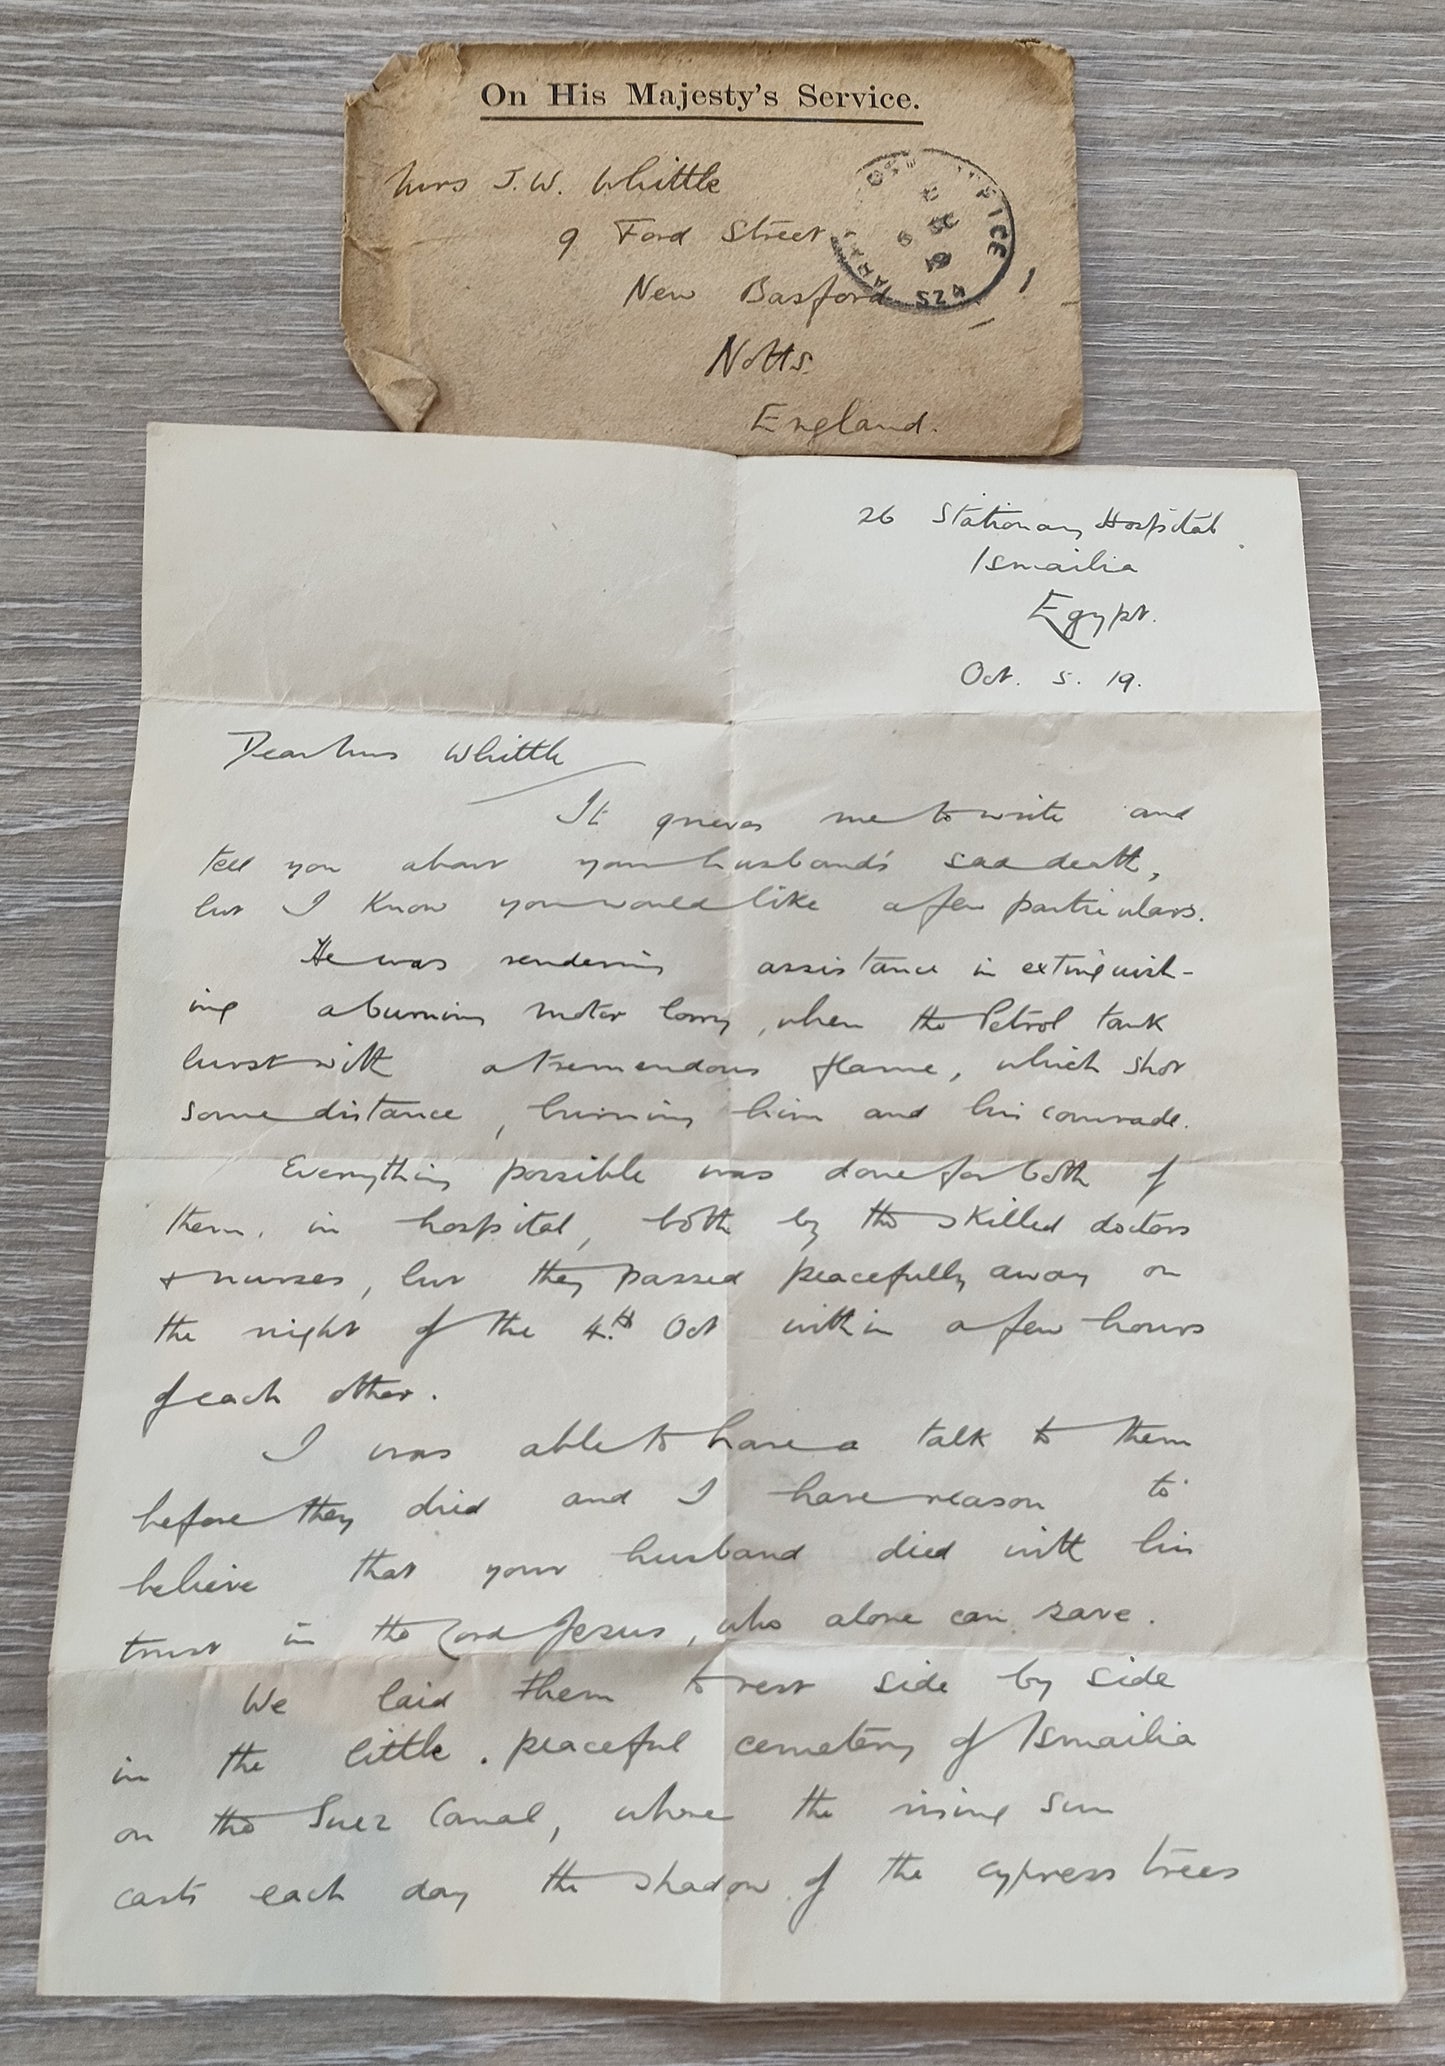 On His Majesty's Service.
Mrs J. W. Whittle
9 Ford Street
New Basford
Notts.
England.
OFFICE
SZ4
26 Stationary Hospital.
Ismailia
Egypt.
Oct. 5. 19.
Dear Mrs Whittle
It grieves me to write and
tell you about your husband's sad death,
but I know you would like a few particulars.
He was rendering assistance in extinguish-
ing a burning motor lorry, when the Petrol tank
burst with a tremendous flame, which shot
some distance, burning him and his comrade.
Everything possible was done for both of
them. in hospital, both by the skilled doctors
+ nurses, but they passed peacefully away on
the night of the 4th Oct within a few hours
of each other.
I was able to have a talk to them
before they died and I have reason to
believe that your husband died with his
trust in the Lord Jesus, who alone can save.
We laid them to rest side by side
in the little peaceful cemetery of Ismailia
on the Suez Canal, where the rising sun
casts each day the shadow of the cypress trees